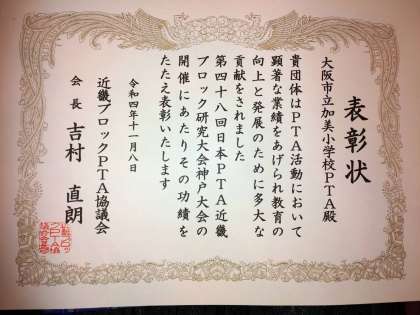 表彰状
大阪市立加美小学校PTA殿
貴団体はPTA活動において
顕著な業績をあげられ教育の
向上と発展のために多大な
貢献をされました
第四十八回日本PTA近畿
ブロック研究大会神戸大会の
開催にあたりその功績を
たたえ表彰いたします
令和四年十一月八日
近畿ブロックPTA協議会
会長 吉村 直朗